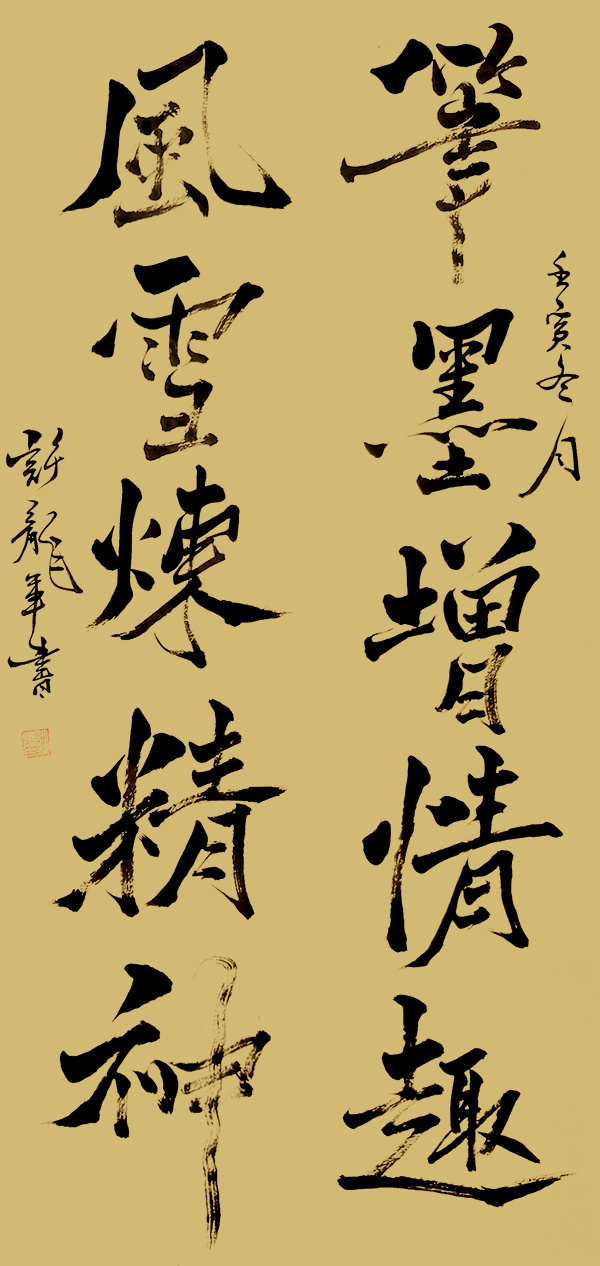 筆墨增情趣
壬寅冬月
風雪煉精神
許龍年書